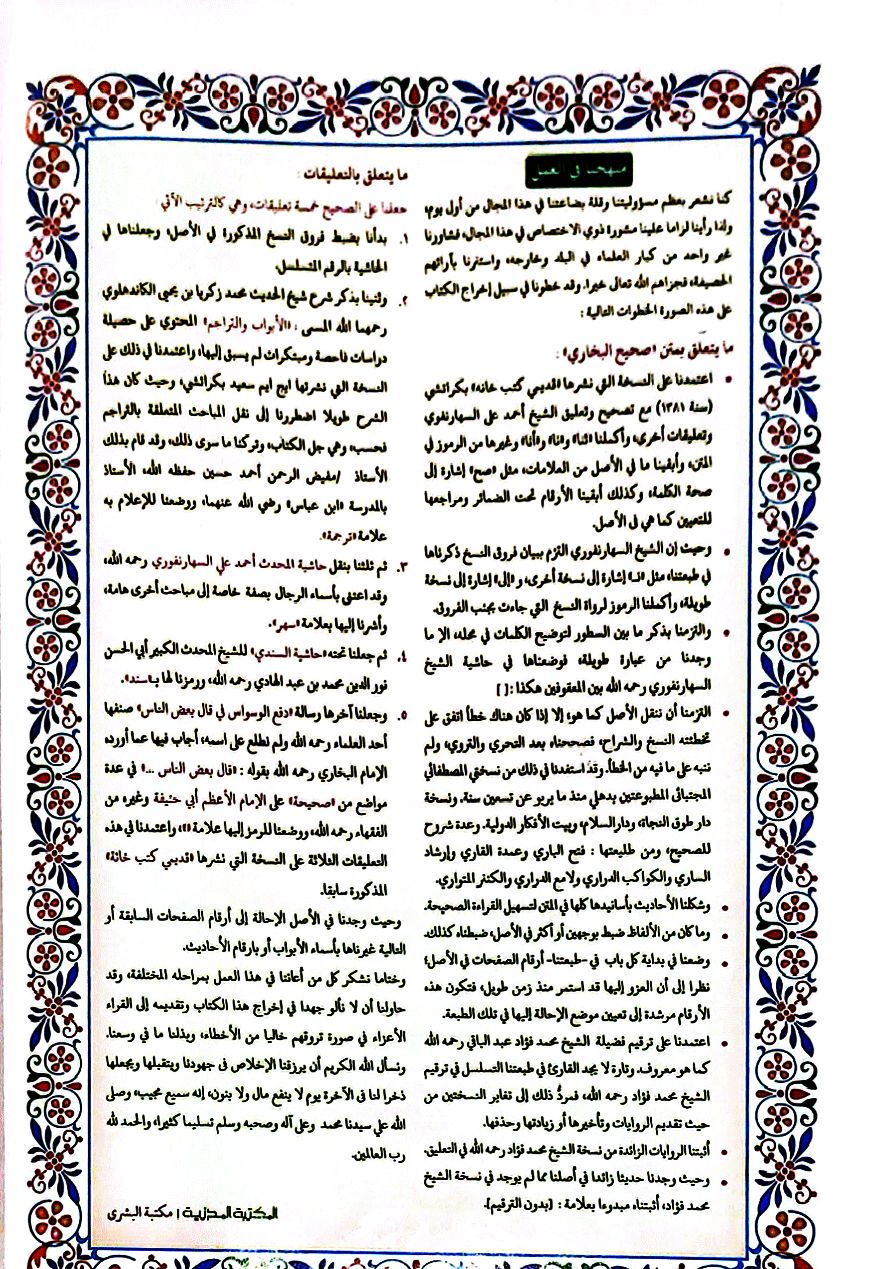 منهجنا في العمل
كنا نشعر بعظم مسؤوليتنا وقلة بضاعتنا في هذا المجال من أول يوم،
ولذا رأينا لزاما علينا مشورة ذوي الاختصاص في هذا المجال، فشاورنا
غير واحد من كبار العلماء في البلد وخارجه، واستنرنا بآرائهم
الحصيفة، فجزاهم الله تعالى خيرا. وقد خطونا في سبيل إخراج الكتاب
على هذه الصورة الخطوات التالية :
ما يتعلق بمتن «صحيح البخاري» :
• اعتمدنا على النسخة التي نشرها «قديمي كتب خانه» بكراتشي
(سنة ١٣٨١) مع تصحيح وتعليق الشيخ أحمد علي السهارنفوري
وتعليقات أخرى، وأكملنا «ثنا» و«نا» و«أنا» وغيرها من الرموز في
المتن، وأبقينا ما في الأصل من العلامات، مثل «صح» إشارة إلى
صحة الكلمة، وكذلك أبقينا الأرقام تحت الضمائر ومراجعها
للتعيين كما هي في الأصل.
• وحيث إن الشيخ السهارنفوري التزم ببيان فروق النسخ ذكرناها
في طبعتنا، مثل «نـ» إشارة إلى نسخة أخرى، و«إلى» إشارة إلى نسخة
طويلة، وأكملنا الرموز لرواة النسخ التي جاءت بجنب الفروق.
• والتزمنا بذكر ما بين السطور لتوضيح الكلمات في محله، إلا ما
وجدنا من عبارة طويلة، فوضعناها في حاشية الشيخ
السهارنفوري رحمه الله بين المعقوفين هكذا : [ ]
• التزمنا أن ننقل الأصل كما هو، إلا إذا كان هناك خطأ اتفق على
تخطئته النسخ والشراح، فصححناه بعد التحري والتروي، ولم
ننبه على ما فيه من الخطأ. وقد استفدنا في ذلك من نسختي المصطفائي
المجتبائي المطبوعتين بدهلي منذ ما يربو عن تسعين سنة، ونسخة
دار طوق النجاة، ودار السلام، وبيت الأفكار الدولية. وعدة شروح
للصحيح، ومن طليعتها : فتح الباري وعمدة القاري وإرشاد
الساري والكواكب الدراري ولامع الدراري والكنز المتواري.
• وشكلنا الأحاديث بأسانيدها كلها في المتن لتسهيل القراءة الصحيحة.
• وما كان من الألفاظ ضبط بوجهين أو أكثر في الأصل، ضبطناه كذلك.
• وضعنا في بداية كل باب في -طبعتنا- أرقام الصفحات في الأصل؛
نظرا إلى أن العزو إليها قد استمر منذ زمن طويل، فتكون هذه
الأرقام مرشدة إلى تعيين موضع الإحالة إليها في تلك الطبعة.
• اعتمدنا على ترقيم فضيلة الشيخ محمد فؤاد عبد الباقي رحمه الله
كما هو معروف. وتارة لا يجد القارئ في طبعتنا التسلسل في ترقيم
الشيخ محمد فؤاد رحمه الله، فمردُّ ذلك إلى تغاير النسختين من
حيث تقديم الروايات وتأخيرها أو زيادتها وحذفها.
• أثبتنا الروايات الزائدة من نسخة الشيخ محمد فؤاد رحمه الله في التعليق.
• وحيث وجدنا حديثا زائدا في أصلنا مما لم يوجد في نسخة الشيخ
محمد فؤاد، أثبتناه مبدوءا بعلامة : [بدون الترقيم].
ما يتعلق بالتعليقات :
جعلنا على الصحيح خمسة تعليقات، وهي كالترتيب الآتي :
١. بدأنا بضبط فروق النسخ المذكورة في الأصل، وجعلناها في
الحاشية بالرقم المتسلسل.
٢. وثنينا بذكر شرح شيخ الحديث محمد زكريا بن يحيى الكاندهلوي
رحمهما الله المسمى : «الأبواب والتراجم» المحتوي على حصيلة
دراسات فاحصة ومبتكرات لم يسبق إليها، واعتمدنا في ذلك على
النسخة التي نشرتها ايج ايم سعيد بكراتشي، وحيث كان هذا
الشرح طويلا اضطررنا إلى نقل المباحث المتعلقة بالتراجم
فحسب، وهي جل الكتاب، وتركنا ما سوى ذلك، وقد قام بذلك
الأستاذ /مفيض الرحمن أحمد حسين حفظه الله، الأستاذ
بالمدرسة «ابن عباس» رضي الله عنهما، ووضعنا للإعلام به
علامة «ترجمة».
٣. ثم ثلثنا بنقل حاشية المحدث أحمد علي السهارنفوري رحمه الله،
وقد اعتنى بأسماء الرجال بصفة خاصة إلى مباحث أخرى هامة،
وأشرنا إليها بعلامة «سهر».
٤. ثم جعلنا تحته «حاشية السندي» للشيخ المحدث الكبير أبي الحسن
نور الدين محمد بن عبد الهادي رحمه الله، ورمزنا لها بـ«سند».
٥. وجعلنا آخرها رسالة «دفع الوسواس في قال بعض الناس» صنفها
أحد العلماء رحمه الله ولم نطلع على اسمه، أجاب فيها عما أورد،
الإمام البخاري رحمه الله بقوله : «قال بعض الناس ...» في عدة
مواضع من «صحيحة» على الإمام الأعظم أبي حنيفة وغيره، من
الفقهاء رحمه الله، ووضعنا للرمز إليها علامة واعتمدنا في هذه
التعليقات الثلاثة على النسخة التي نشرها «قديمي كتب خانة»
المذكورة سابقا.
وحيث وجدنا في الأصل الإحالة إلى أرقام الصفحات السابقة أو
التالية غيرناها بأسماء الأبواب أو بارقام الأحاديث.
وختاما نشكر كل من أعاننا في هذا العمل بمراحله المختلفة، وقد
حاولنا أن لا نألو جهدا في إخراج هذا الكتاب وتقديمه إلى القراء
الأعزاء في صورة تروقهم خاليا من الأخطاء، وبذلنا ما في وسعنا.
ونسأل الله الكريم أن يرزقنا الإخلاص في جهودنا ويتقبلها ويجعلها
ذخرا لنا في الآخرة يوم لا ينفع مال ولا بنون، إنه سميع مجيب، وصلى
الله علي سيدنا محمد وعلى آله وصحبه وسلم تسليما كثيرا، والحمد لله
رب العالمين.
المكتبة المدنية | مكتبة البشرى